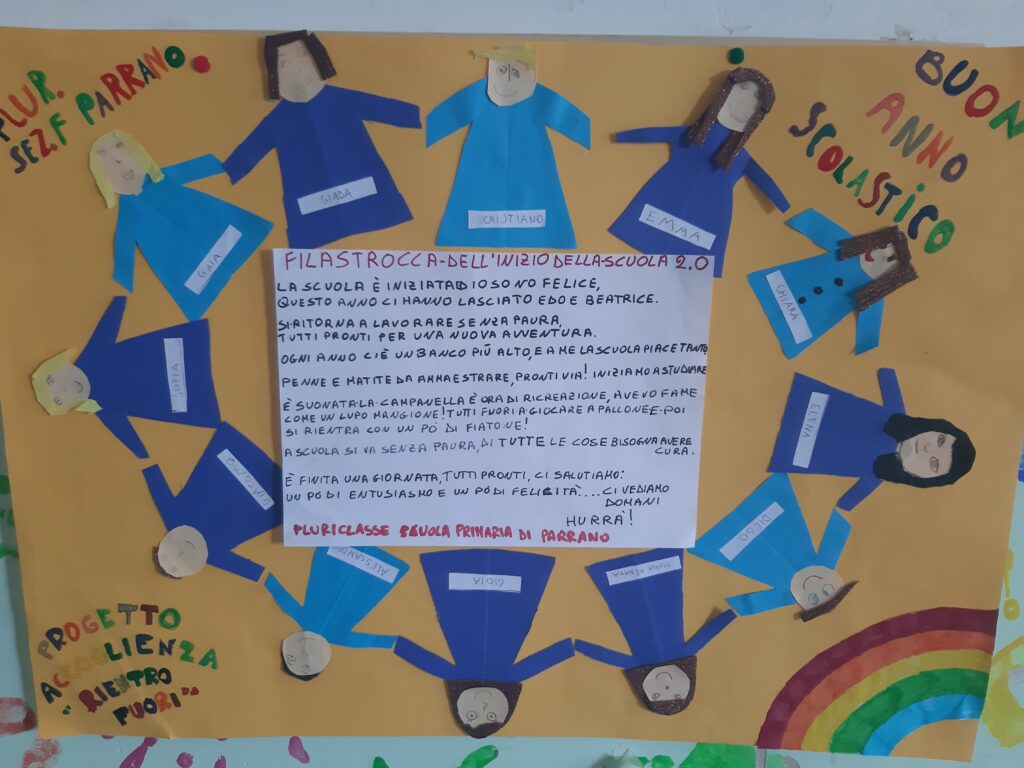 PLUR.
SEZ.F PARRANO
BUON
ANNO
SCOLASTICO
GIADA
CRISTIANO
EMMA
GAIA
CHIARA
SOFIA
ELENA
GIACOMO
DIEGO
ALESSANDR
GIOIA
MARIA
FILASTROCCA-DELL'INIZIO DELLA SCUOLA 2.0
LA SCUOLA È INIZIATA ED IO SONO FELICE,
QUESTO ANNO CI HANNO LASCIATO EDO E BEATRICE.
SI RITORNA A LAVORARE SENZA PAURA,
TUTTI PRONTI PER UNA NUOVA AVVENTURA.
OGNI ANNO C'È UN BANCO PIÙ ALTO, E A ME LA SCUOLA PIACE TANTO,
PENNE E MATITE DA AMMAESTRARE, PRONTI VIA! INIZIAMO A STUDIARE
È SUONATA LA CAMPANELLA È ORA DI RICREAZIONE, AVEVO FAME
COME UN LUPO MANGIONE! TUTTI FUORI A GIOCARE A PALLONE E POI
SI RIENTRA CON UN PÒ DI FIATONE!
A SCUOLA SI VA SENZA PAURA, DI TUTTE LE COSE BISOGNA AVERE
CURA.
È FINITA UNA GIORNATA, TUTTI PRONTI, CI SALUTIAMO:
UN PÒ DI ENTUSIASMO E UN PÒ DI FELICITÀ....CI VEDIAMO
DOMANI
HURRÀ!
PLURICLASSE SCUOLA PRIMARIA DI PARRANO
PROGETTO
ACCOGLIENZA
"RIENTRO
FUORI"